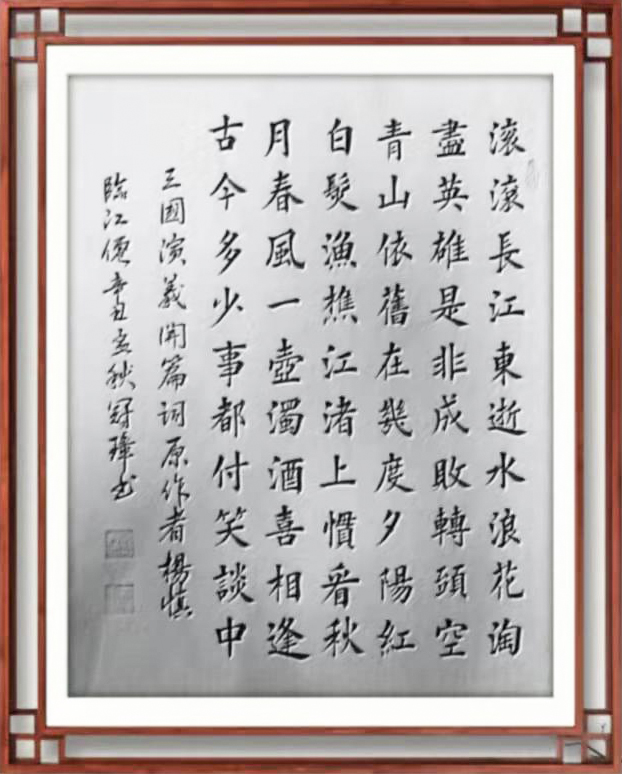 滾滾長江東逝水浪花淘
盡英雄是非成敗轉頭空
青山依舊在幾度夕陽紅
白髮漁樵江渚上慣看秋
月春風一壺濁酒喜相逢
古今多少事都付笑談中
三國演義開篇詞原作者楊慎
臨江僊辛丑秋冠璋书